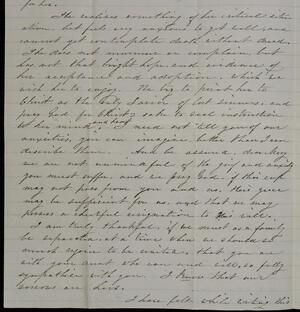 for her.
She realizes something of her critical situ-
ation, but feels very anxious to get well, and
cannot yet contemplate death without dread.
She does not murmur or complain but
has not that bright hope and evidence of
her acceptance and adoption, which we
wish her to enjoy. We try to point her to
Christ as the only Savior of lost sinners, and
pray God, for Christ's sake to seal instruction
to her mind and heart. I need not tell you of our
anxieties, you can imagine better than I can
describe them. And be assured,
we are not unmindful of the grief and anxiety
you must suffer, and we pray God, if this cup
may not pass from you and us, His grace
may be sufficient for us, and that we may
possess a cheerful resignation to His will.
I am truly thankful, if we must as a family
be separated, at a time when we should so
much rejoice to be united, that you are
with your aunt who can and will, so fully
sympathize with you. I know that our
sorrows are hers.
I have felt while writing this